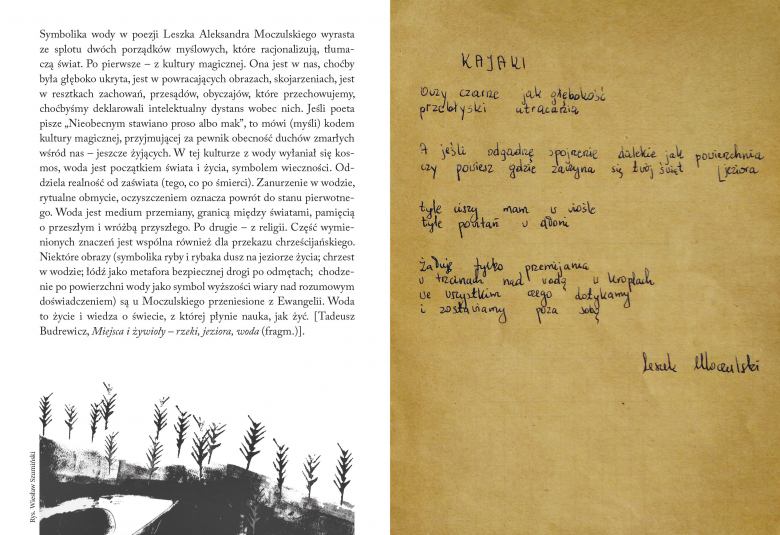 Symbolika wody w poezji Leszka Aleksandra Moczulskiego wyrasta
ze splotu dwóch porządków myślowych, które racjonalizują, tłuma-
czą świat. Po pierwsze – z kultury magicznej. Ona jest w nas, choćby
była głęboko ukryta, jest w powracających obrazach, skojarzeniach, jest
w resztkach zachowań, przesądów, obyczajów, które przechowujemy,
choćbyśmy deklarowali intelektualny dystans wobec nich. Jeśli poeta
pisze „Nieobecnym stawiano proso albo mak”, to mówi (myśli) kodem
kultury magicznej, przyjmującej za pewnik obecność duchów zmarłych
wśród nas – jeszcze żyjących. W tej kulturze z wody wyłaniał się kos-
mos, woda jest początkiem świata i życia, symbolem wieczności. Od-
dziela realność od zaświata (tego, co po śmierci). Zanurzenie w wodzie,
rytualne obmycie, oczyszczeniem oznacza powrót do stanu pierwotne-
go. Woda jest medium przemiany, granicą między światami, pamięcią
o przeszłym i wróżbą przyszłego. Po drugie – z religii. Część wymie-
nionych znaczeń jest wspólna również dla przekazu chrześcijańskiego.
Niektóre obrazy (symbolika ryby i rybaka dusz na jeziorze życia; chrzest
w wodzie; łódź jako metafora bezpiecznej drogi po odmętach; chodze-
nie po powierzchni wody jako symbol wyższości wiary nad rozumowym
doświadczeniem) są u Moczulskiego przeniesione z Ewangelii. Woda
to życie i wiedza o świecie, z której płynie nauka, jak żyć. [Tadeusz
Budrewicz, Miejsca i żywioły – rzeki, jeziora, woda (fragm.)].
Rys. Wiesław Szumiński
KAJAKI
Oczy czarne jak głębokość
przebłyski utracania
A jeśli odgadnę spojrzenie dalekie jak powierzchnia
czy powiesz gdzie zaczyna się twój świat [jeziora
tyle ciszy mam w wiośle
tyle pytań w dłoni
Żałuję tylko przemijania
w trzcinach nad wodą w kroplach
we wszystkim czego dotykamy
i zostawiamy poza sobą
Leszek Moczulski